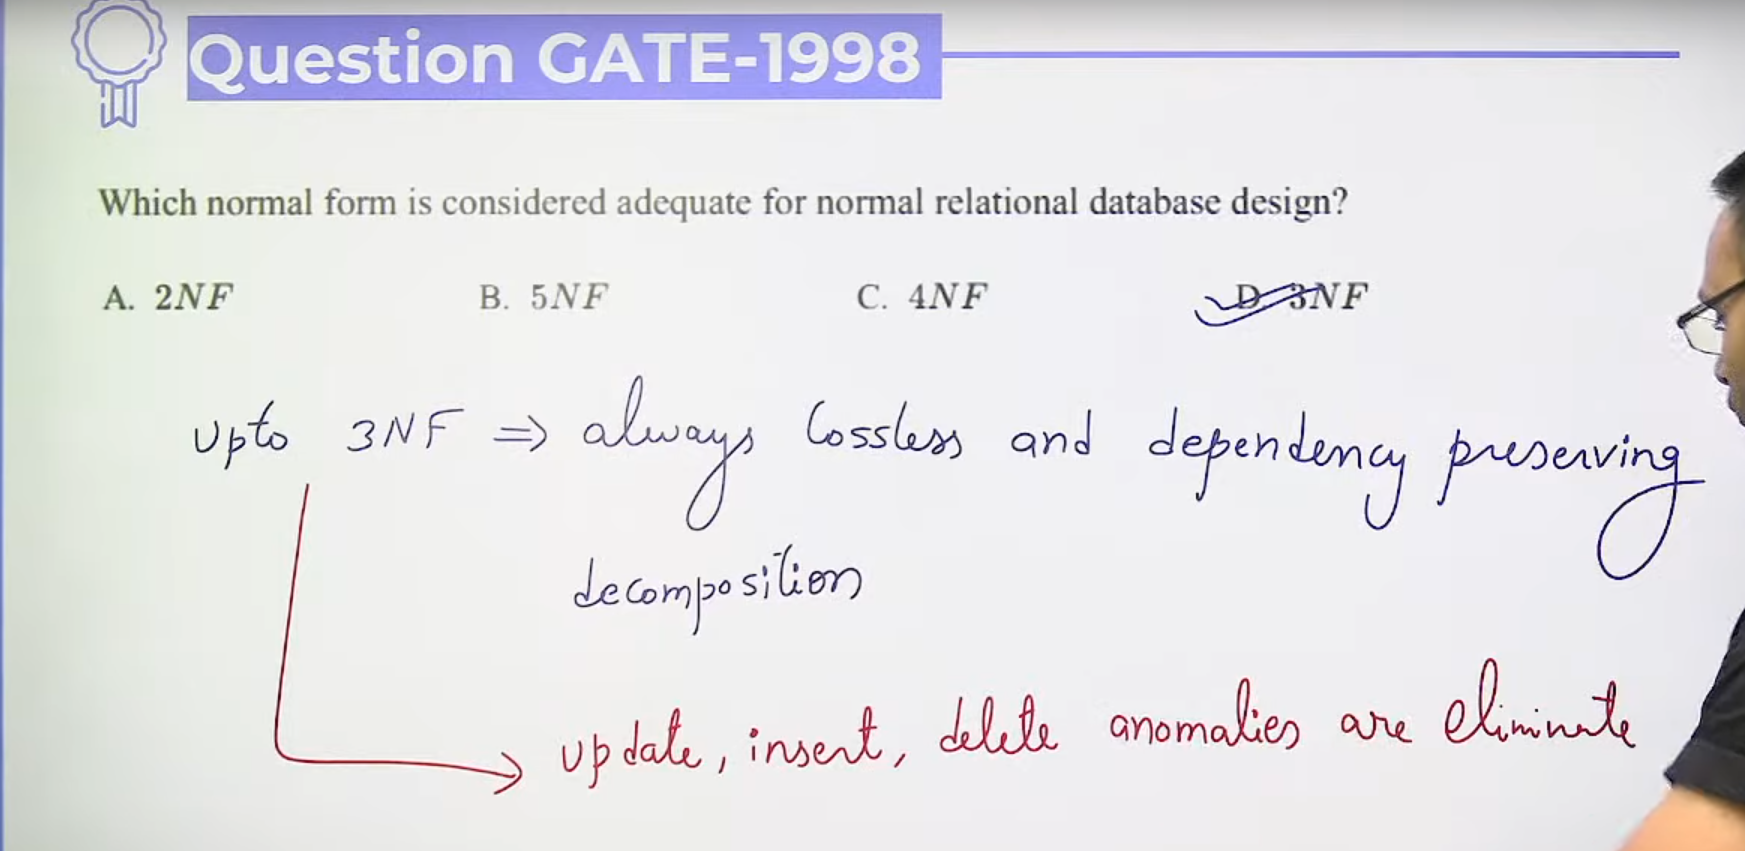 Question GATE-1998
Which normal form is considered adequate for normal relational database design?
A. 2NF B. 5NF C. 4NF D. 3NF
upto 3NF ⇒ always lossless and dependency preserving
decomposition
update, insert, delete anomalies are eliminate